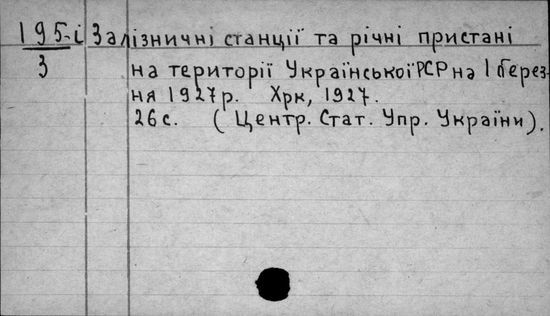 195-і Залізничні станції та річні пристані
3
на території Української РСР на 1 берез-
ня 1927 р. Хрк, 1927.
26 с. ( Центр. Стат. Упр. України).